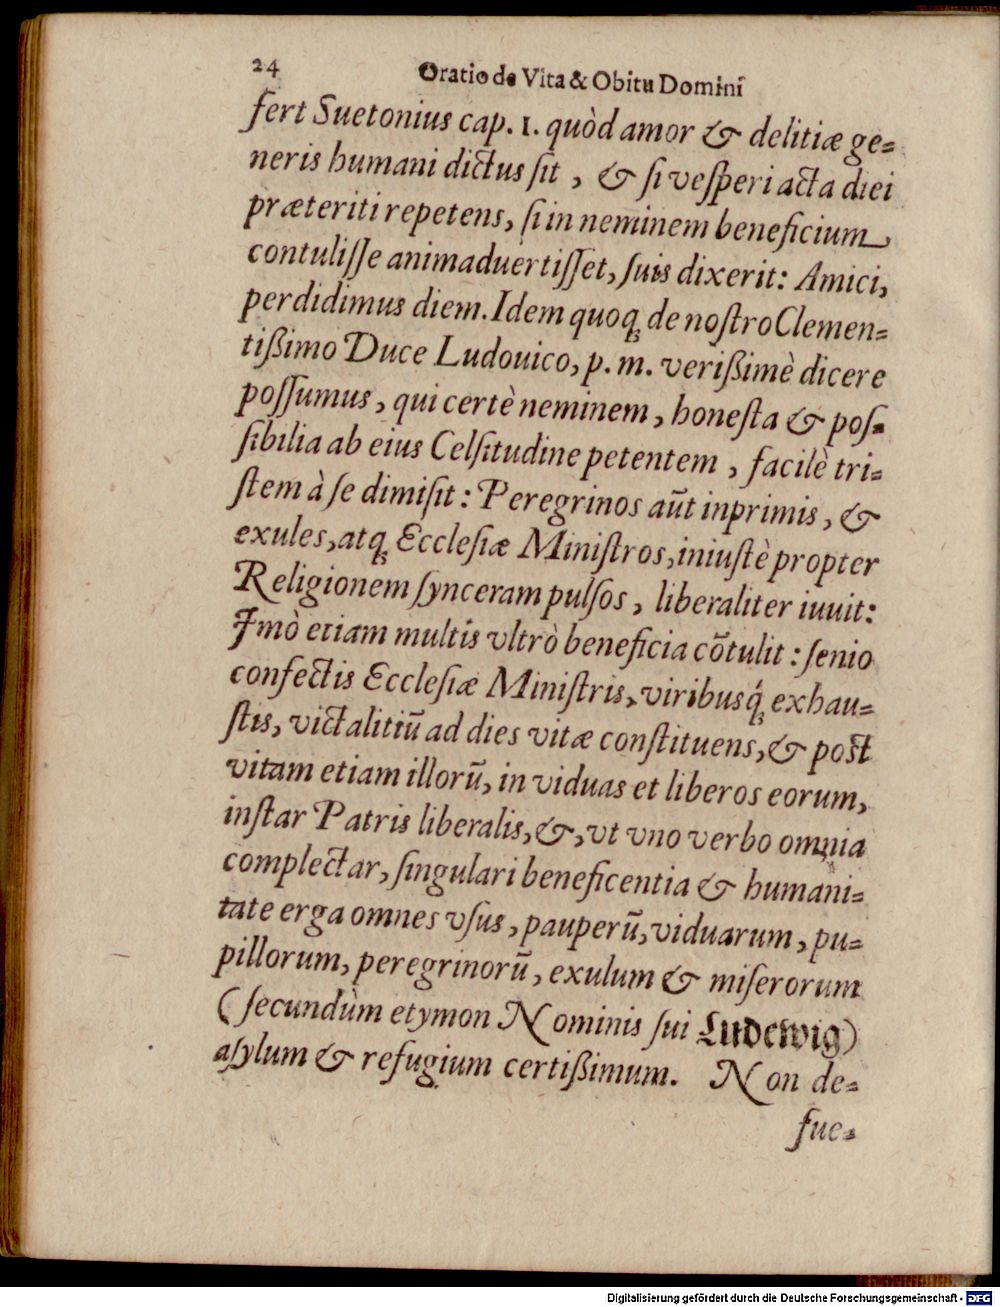 24 Oratio de Vita & Obitu Domini
fert Suetonius cap. 1. quòd amor & delitiæ ge=
neris humani dictus ſit, & ſi veſperi acta diei
præteriti repetens, ſi in neminem beneficium
contuliſſe animaduertiſſet, ſuis dixerit: Amici,
perdidimus diem. Idem quoqꝫ de noſtro Clemen=
tißimo Duce Ludouico, p. m. verißimè dicere
poſſumus, qui certè neminem, honeſta & poſ=
ſibilia ab eius Celſitudine petentem, facilè tri=
ſtem à ſe dimiſit: Peregrinos aūt inprimis, &
exules, atqꝫ Eccleſiæ Miniſtros, iniuſtè propter
Religionem ſynceram pulſos, liberaliter iuuit:
Imò etiam multis vltrò beneficia cōtulit: ſenio
confectis Eccleſiæ Miniſtris, viribusq́ꝫ exhau=
ſtis, victalitiū ad dies vitæ conſtituens, & poſt
vitam etiam illorū, in viduas et liberos eorum,
inſtar Patris liberalis, &, vt vno verbo omnia
complectar, ſingulari beneficentia & humani=
tate erga omnes vſus, pauperū, viduarum, pu=
pillorum, peregrinorū, exulum & miſerorum
(ſecundùm etymon Nominis ſui Ludewig)
aſylum & refugium certißimum. Non de=
fue=
Digitalisierung gefördert durch die Deutsche Forschungsgemeinschaft - DFG